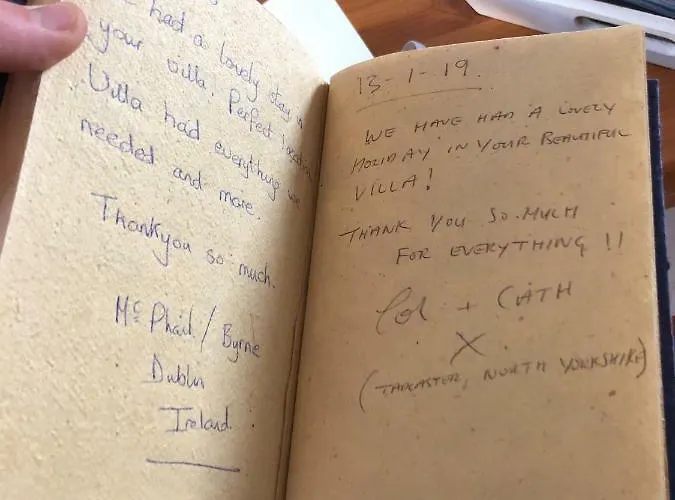 had a lovely stay in
your villa. Perfect location
Villa had everything we
needed and more.
Thankyou so much.
Mc Phail / Byrne
Dublin
Ireland.
13-1-19.
WE HAVE HAD A LOVELY
HOLIDAY IN YOUR BEAUTIFUL
VILLA!
THANK YOU SO MUCH
FOR EVERYTHING !!
Col + CATH
X
(TADCASTER, NORTH YORKSHIRE)